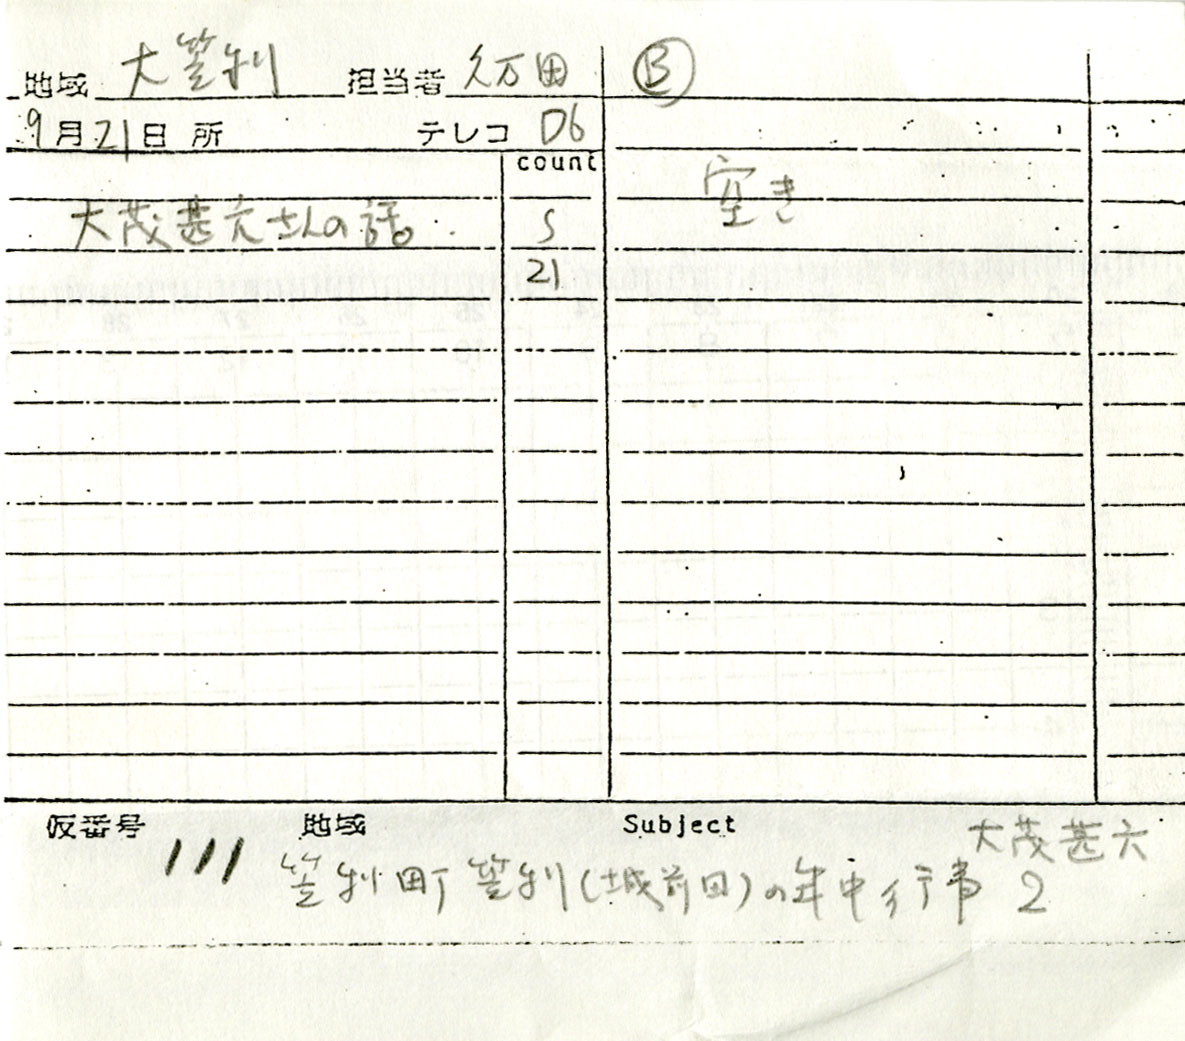 地域 大笠利 担当者 久万田 Ⓑ
9月21日 所 テレコ D6
count
空き
大茂甚六さんの話 5
21
仮番号 地域 Subject
大茂甚六
111 笠利町笠利(城前田)の年中行事 2